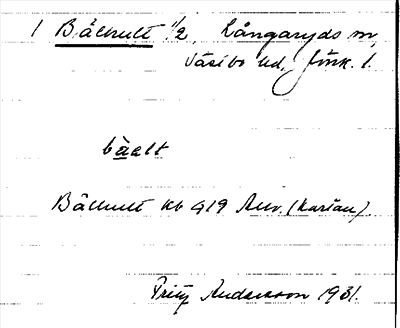 1 Bälhult 1/2, Långaryds sn,
Västbo hd, Jönk. l.
bàəlt
Bälhult kb 919 Anv. (kartan)
Fritz Andersson 1931.